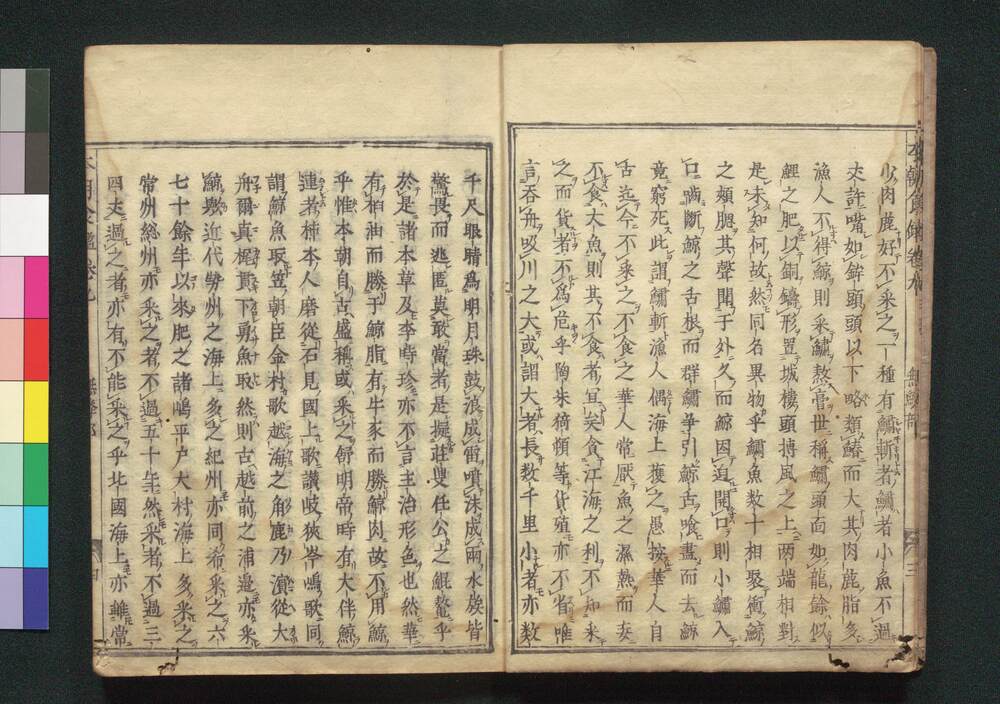 本朝食鑑卷九 無鱗部 三
少肉麁好不采之一種有鱐斬者鱐者小魚不過
丈許嘴如鉾頭頭以下略類鱔而大其肉麁脂多
漁人不得鯨則采鱐熬膏世稱鱐頭面如龍餘似
鯉之肥以銅鑄形置城樓頭搏風之上兩端相對
是未知何故然同名異物乎鱐魚数十相聚衝鯨
之頰腮其聲聞于外久而鯨困迫開口則小鱐入
口嚙斷鯨之舌根而群鱐爭引鯨舌喰盡而去鯨
竟窮死此謂鱐斬漁人偶海上獲之愚按華人自
古迄今不采之不食之華人常厭魚之濕熱而妄
不食大魚則其不食者冝矣貪江海之利不知采
之而貨者不為危乎陶朱猗頓等貨殖亦不省唯
言吞舟吸川之大或謂大者長数千里小者亦数
千尺眼睛為明月珠鼓浪成雷噴沫成雨水族皆
驚畏而逃匿莫敢當者是擬莊叟任公之鯤鼇乎
於是諸本草及李時珍亦不言主治形色也然華
有桕油而勝于鯨脂有牛豕而勝鯨肉故不用鯨
乎惟本朝自古盛稱或采之舒明帝時有大伴鯨
連者柿本人磨從石見國上歌讃岐狹岑嶋歌同
謂鯨魚取笠朝臣金村歌越海之角鹿乃濱從大
舟爾真梶貫下勇魚取然則古越前之浦邉亦采
鯨歟近代勢州之海上多之紀州亦同希采之六
七十餘年以來肥之諸嶋平戸大村海上多采之
常州総州亦采之者不過五十年然采者不過三
四丈過之者亦有不能采之乎北國海上亦雖常
本朝食鑑卷九 無鱗部 四